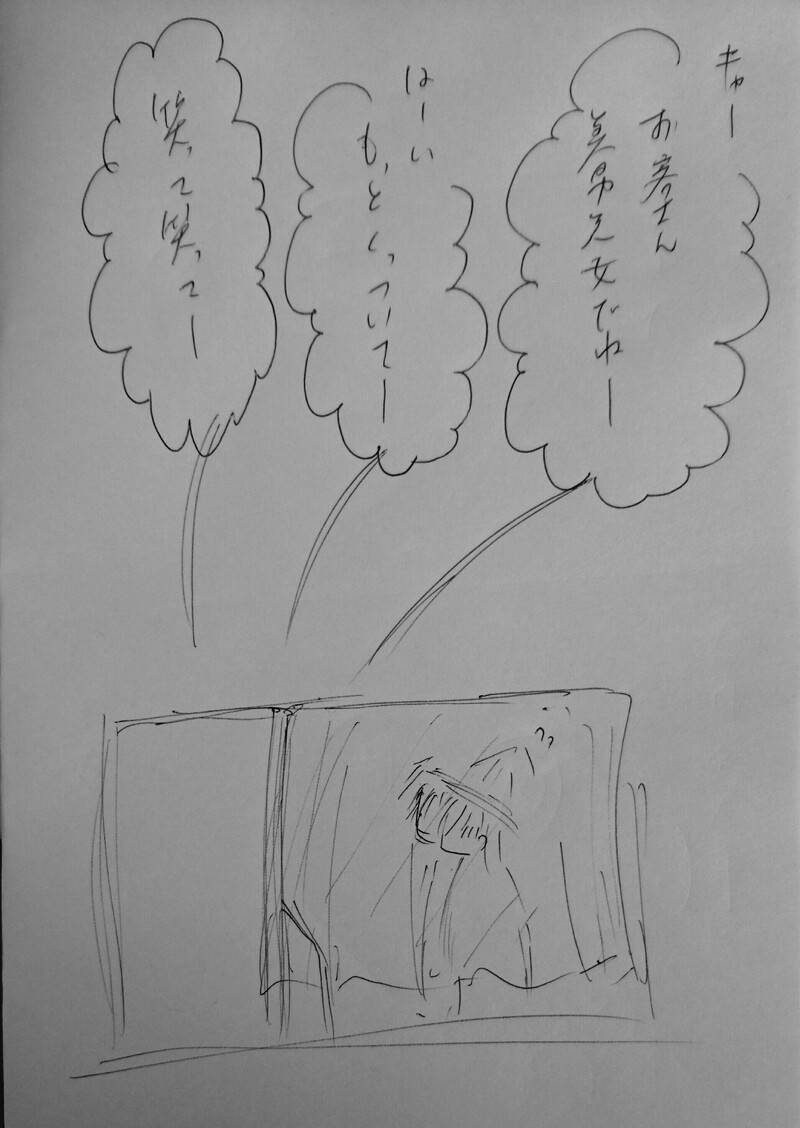 キャー
お客さん
美男美女だねー
はーい
もっとくっついてー
笑って笑ってー